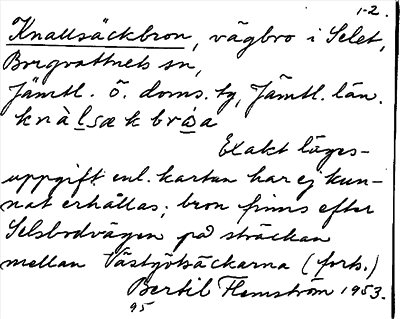 1-2.
Knallsäckbron, vägbro i Selet,
Borgvattnets sn,
Jämtl. ö. doms. tg, Jämtl. län.
knàlsækbrǻa
Exakt läges-
uppgift enl. kartan har ej kun-
nat erhållas; bron finns efter
Selsbodvägen på sträckan
mellan Västgötbäckarna (forts.)
Bertil Flemström 1953.
95